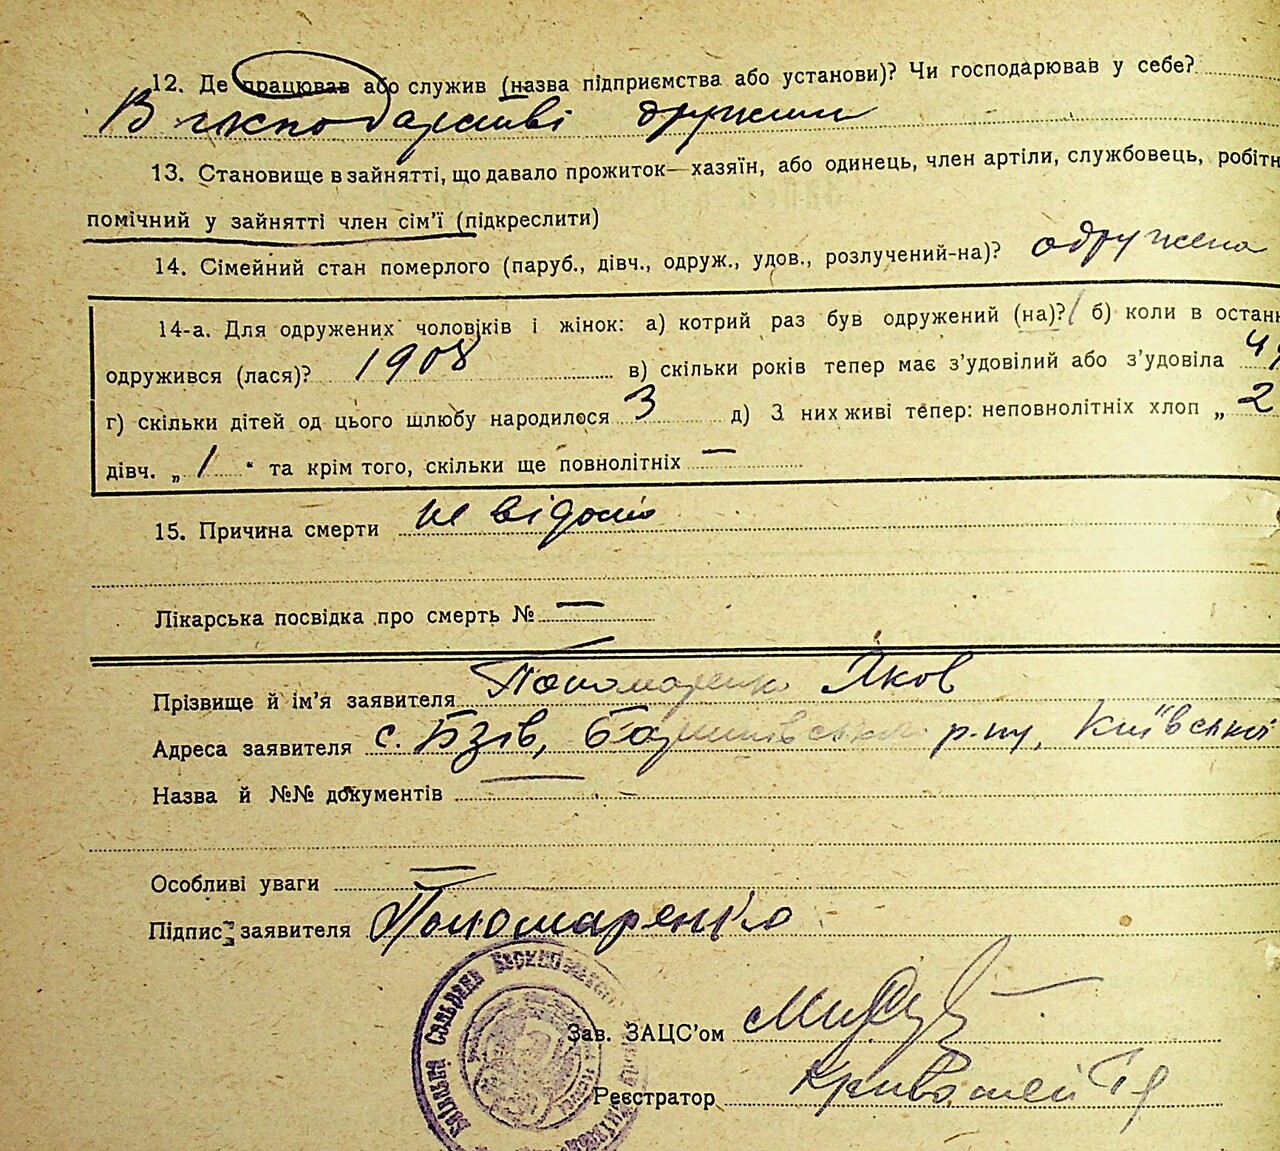 12. Де працював або служив (назва підприємства або установи)? Чи господарював у себе?
В господарстві дружини
13. Становище в зайнятті, що давало прожиток—хазяїн, або одинець, член артіли, службовець, робітн
помічний у зайнятті член сім'ї (підкреслити)
14. Сімейний стан померлого (паруб., дівч., одруж., удов., розлучений-на)? одружена
14-а. Для одружених чоловіків і жінок: а) котрий раз був одружений (на)? 1 б) коли в останн
одружився (лася)? 1908 в) скільки років тепер має з'удовілий або з'удовіла
г) скільки дітей од цього шлюбу народилося 3 д) З них живі тепер: неповнолітніх хлоп „ 2
дівч. „ 1 “ та крім того, скільки ще повнолітніх —
15. Причина смерти не відомо
Лікарська посвідка про смерть № —
Прізвище й ім'я заявителя Пономаренко Яков
Адреса заявителя с. Бзів, Баришівський р-ну, Київської
Назва й №№ документів —
Особливі уваги —
Підпис заявителя Пономаренко
Зав. ЗАЦС'ом
Реєстратор